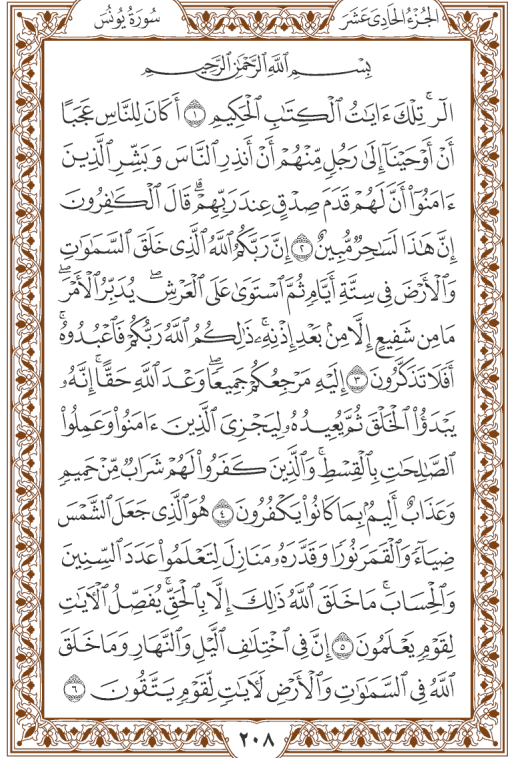 الجزء الحادي عشر
سورة يونس
بِسْمِ ٱللَّهِ ٱلرَّحْمَٰنِ ٱلرَّحِيمِ
الٓر ۚ تِلْكَ ءَايَٰتُ ٱلْكِتَٰبِ ٱلْحَكِيمِ ١ أَكَانَ لِلنَّاسِ عَجَبًا
أَنْ أَوْحَيْنَآ إِلَىٰ رَجُلٍ مِّنْهُمْ أَنْ أَنذِرِ ٱلنَّاسَ وَبَشِّرِ ٱلَّذِينَ
ءَامَنُوٓا۟ أَنَّ لَهُمْ قَدَمَ صِدْقٍ عِندَ رَبِّهِمْ ۗ قَالَ ٱلْكَٰفِرُونَ
إِنَّ هَٰذَا لَسَٰحِرٌ مُّبِينٌ ٢ إِنَّ رَبَّكُمُ ٱللَّهُ ٱلَّذِى خَلَقَ ٱلسَّمَٰوَٰتِ
وَٱلْأَرْضَ فِى سِتَّةِ أَيَّامٍ ثُمَّ ٱسْتَوَىٰ عَلَى ٱلْعَرْشِ ۖ يُدَبِّرُ ٱلْأَمْرَ ۖ
مَا مِن شَفِيعٍ إِلَّا مِنۢ بَعْدِ إِذْنِهِۦ ۚ ذَٰلِكُمُ ٱللَّهُ رَبُّكُمْ فَٱعْبُدُوهُ ۚ
أَفَلَا تَذَكَّرُونَ ٣ إِلَيْهِ مَرْجِعُكُمْ جَمِيعًا ۖ وَعْدَ ٱللَّهِ حَقًّا ۚ إِنَّهُۥ
يَبْدَؤُا۟ ٱلْخَلْقَ ثُمَّ يُعِيدُهُۥ لِيَجْزِىَ ٱلَّذِينَ ءَامَنُوا۟ وَعَمِلُوا۟
ٱلصَّٰلِحَٰتِ بِٱلْقِسْطِ ۚ وَٱلَّذِينَ كَفَرُوا۟ لَهُمْ شَرَابٌ مِّنْ حَمِيمٍ
وَعَذَابٌ أَلِيمٌۢ بِمَا كَانُوا۟ يَكْفُرُونَ ٤ هُوَ ٱلَّذِى جَعَلَ ٱلشَّمْسَ
ضِيَآءً وَٱلْقَمَرَ نُورًا وَقَدَّرَهُۥ مَنَازِلَ لِتَعْلَمُوا۟ عَدَدَ ٱلسِّنِينَ
وَٱلْحِسَابَ ۚ مَا خَلَقَ ٱللَّهُ ذَٰلِكَ إِلَّا بِٱلْحَقِّ ۚ يُفَصِّلُ ٱلْءَايَٰتِ
لِقَوْمٍ يَعْلَمُونَ ٥ إِنَّ فِى ٱخْتِلَٰفِ ٱلَّيْلِ وَٱلنَّهَارِ وَمَا خَلَقَ
ٱللَّهُ فِى ٱلسَّمَٰوَٰتِ وَٱلْأَرْضِ لَءَايَٰتٍ لِّقَوْمٍ يَتَّقُونَ ٦
٢٠٨